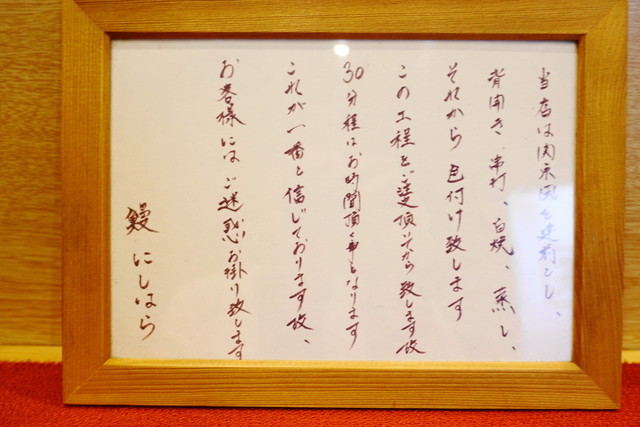 当店は関東風を建前とし、
背開き、串打、白焼、蒸し、
それから色付け致します
この工程をご注文頂いてから致します故
30分程はお時間頂く事となります
これが一番と信じております故、
お客様にはご迷惑お掛け致します
鰻 にしはら